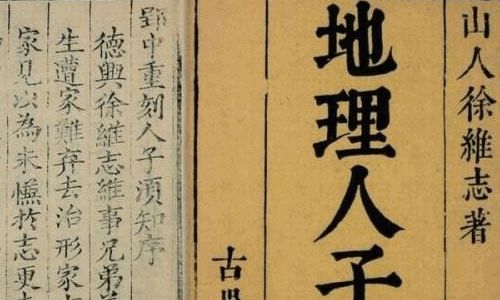 山人徐維志著
地理人子
古
郢中重刻人子須知序
德興徐維志維事兄弟
生遭家難弃去治形家
家見以為未慊於志更